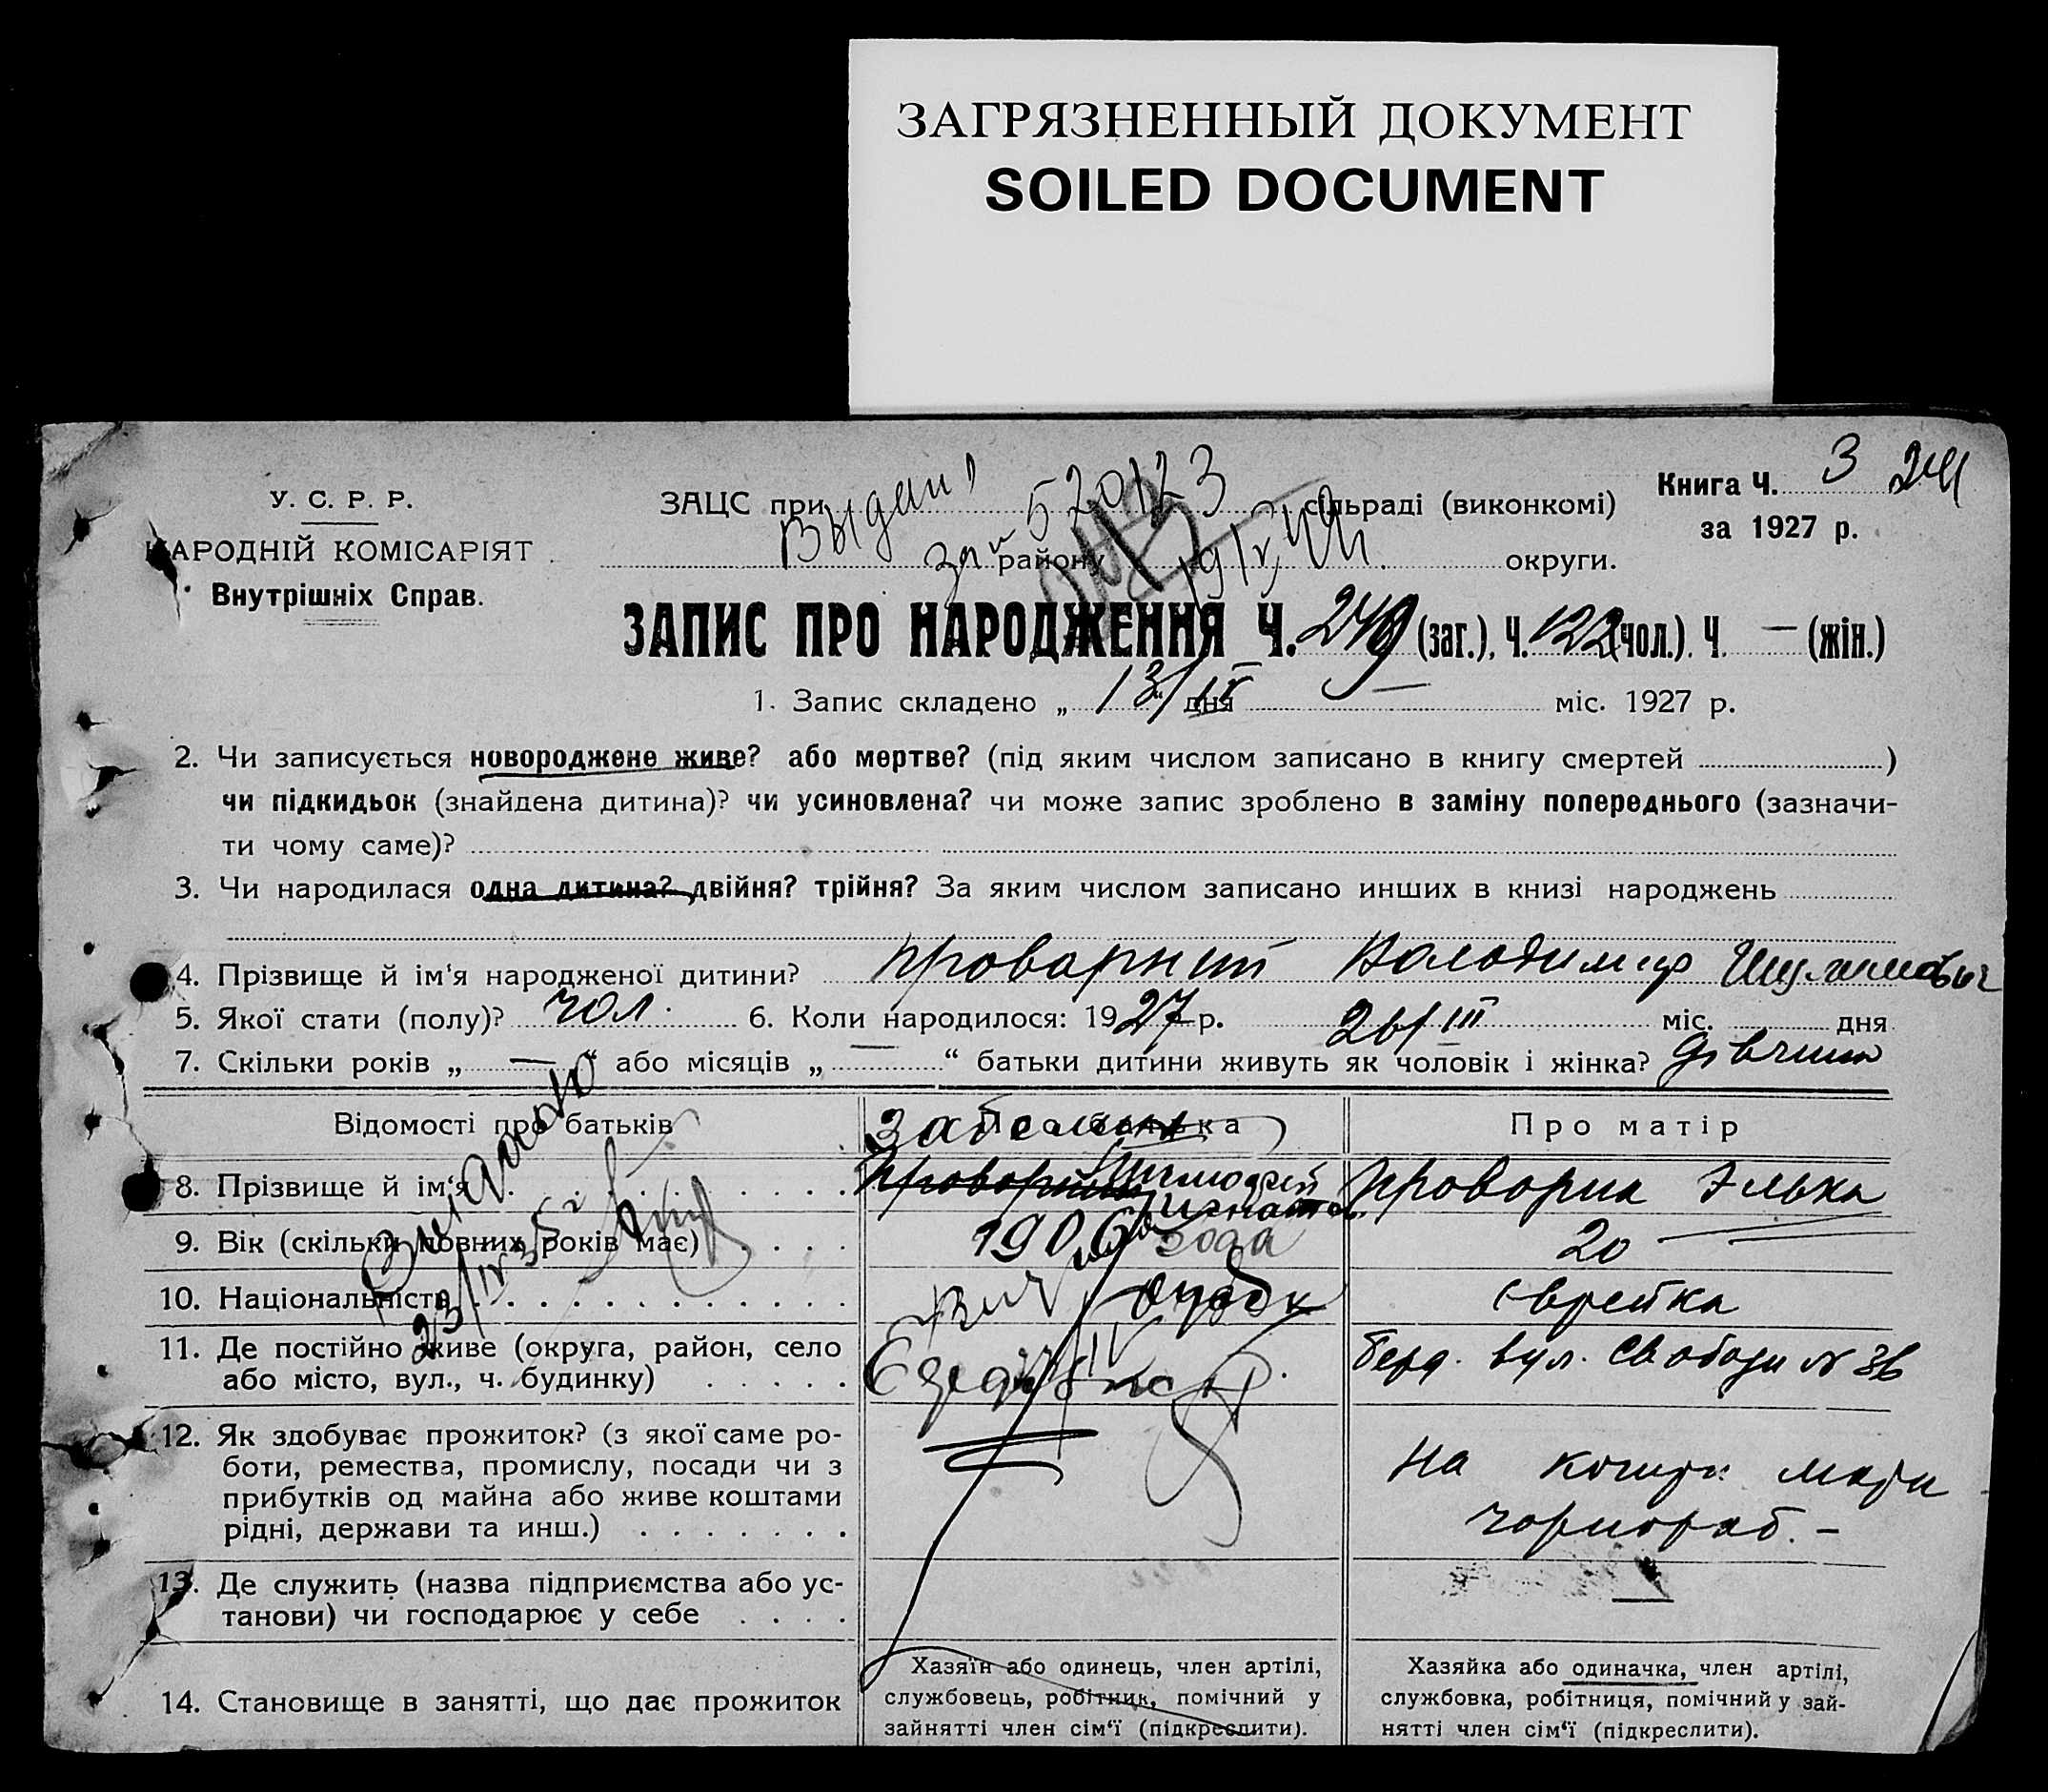 ЗАГРЯЗНЕННЫЙ ДОКУМЕНТ
SOILED DOCUMENT
Книга Ч. 3 241
за 1927 р.
У. С. Р. Р.
НАРОДНІЙ КОМІСАРІЯТ
Внутрішніх Справ.
ЗАЦС при сільраді (виконкомі)
району округи.
Выдан
за № 520123
ЗАПИС ПРО НАРОДЖЕННЯ Ч. 249 (заг.), Ч. 122 (чол.). Ч. — (жін.)
1. Запис складено „ 13/IV “ дня — міс. 1927 р.
2. Чи записується новороджене живе? або мертве? (під яким числом записано в книгу смертей )
чи підкидьок (знайдена дитина)? чи усиновлена? чи може запис зроблено в заміну попереднього (зазначи-
ти чому саме)?
3. Чи народилася одна дитина? двійня? трійня? За яким числом записано инших в книзі народжень
4. Прізвище й ім‘я народженої дитини? Проварний Володимир
5. Якої стати (полу)? чол. 6. Коли народилося: 1927 р. 26/III міс. дня
7. Скільки років „ — “ або місяців „ — “ батьки дитини живуть як чоловік і жінка? дівчина
Відомості про батьків
Про батька
Про матір
8. Прізвище й ім‘я
Проворна Элька
9. Вік (скільки повних років має)
1906 года
20
10. Національність
Єврейка
11. Де постійно живе (округа, район, село
або місто, вул., ч. будинку)
Берд. вул. Свободи № 36
12. Як здобуває прожиток? (з якої саме ро-
боти, ремества, промислу, посади чи з
прибутків од майна або живе коштами
рідні, держави та инш.)
На кошти матери
чорнораб. —
13. Де служить (назва підприємства або ус-
танови) чи господарює у себе
—
14. Становище в занятті, що дає прожиток
Хазяїн або одинець, член артілі,
службовець, робітник, помічний у
зайнятті член сім‘ї (підкреслити).
Хазяйка або одиначка, член артілі,
службовка, робітниця, помічний у зай-
нятті член сім‘ї (підкреслити).